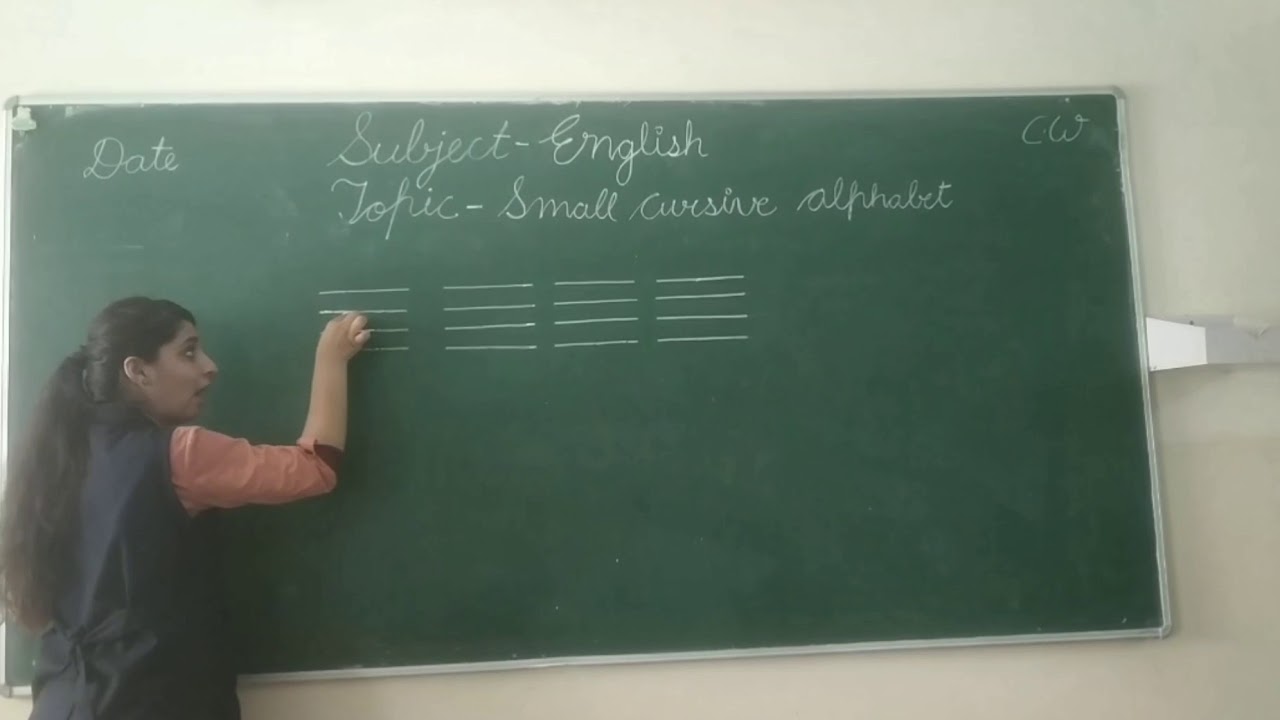 Date
Subject - English
C.W
Topic - Small cursive alphabet